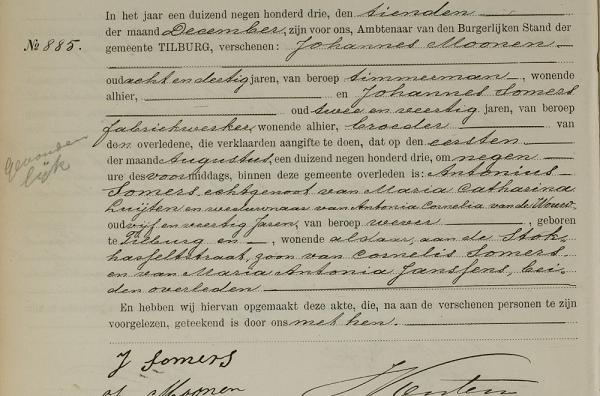 In het jaar een duizend negen honderd drie, den tienden
der maand December, zijn voor ons, Ambtenaar van den Burgerlijken Stand der
No 885.
gemeente TILBURG, verschenen: Johannes Moonen
oud acht en dertig jaren, van beroep timmerman, wonende
alhier, en Johannes Somers
oud twee en veertig jaren, van beroep
fabriekwerker, wonende alhier, broeder van
den overledene, die verklaarden aangifte te doen, dat op den eersten
der maand Augustus, een duizend negen honderd drie, om negen
gevonden
lijk
ure des voormiddags, binnen deze gemeente overleden is: Antonius
Somers, echtgenoot van Maria Catharina
Luijten en weduwnaar van Antonia Cornelia van de Wouw,
oud vijf en veertig Jaren, van beroep wever, geboren
te Tilburg en, wonende aldaar, aan de Stok-
hasseltstraat, zoon van Cornelis Somers
en van Maria Antonia Janssens, bei-
den overleden
En hebben wij hiervan opgemaakt deze akte, die, na aan de verschenen personen te zijn
voorgelezen, geteekend is door ons met hen.
J Somers
Moonen